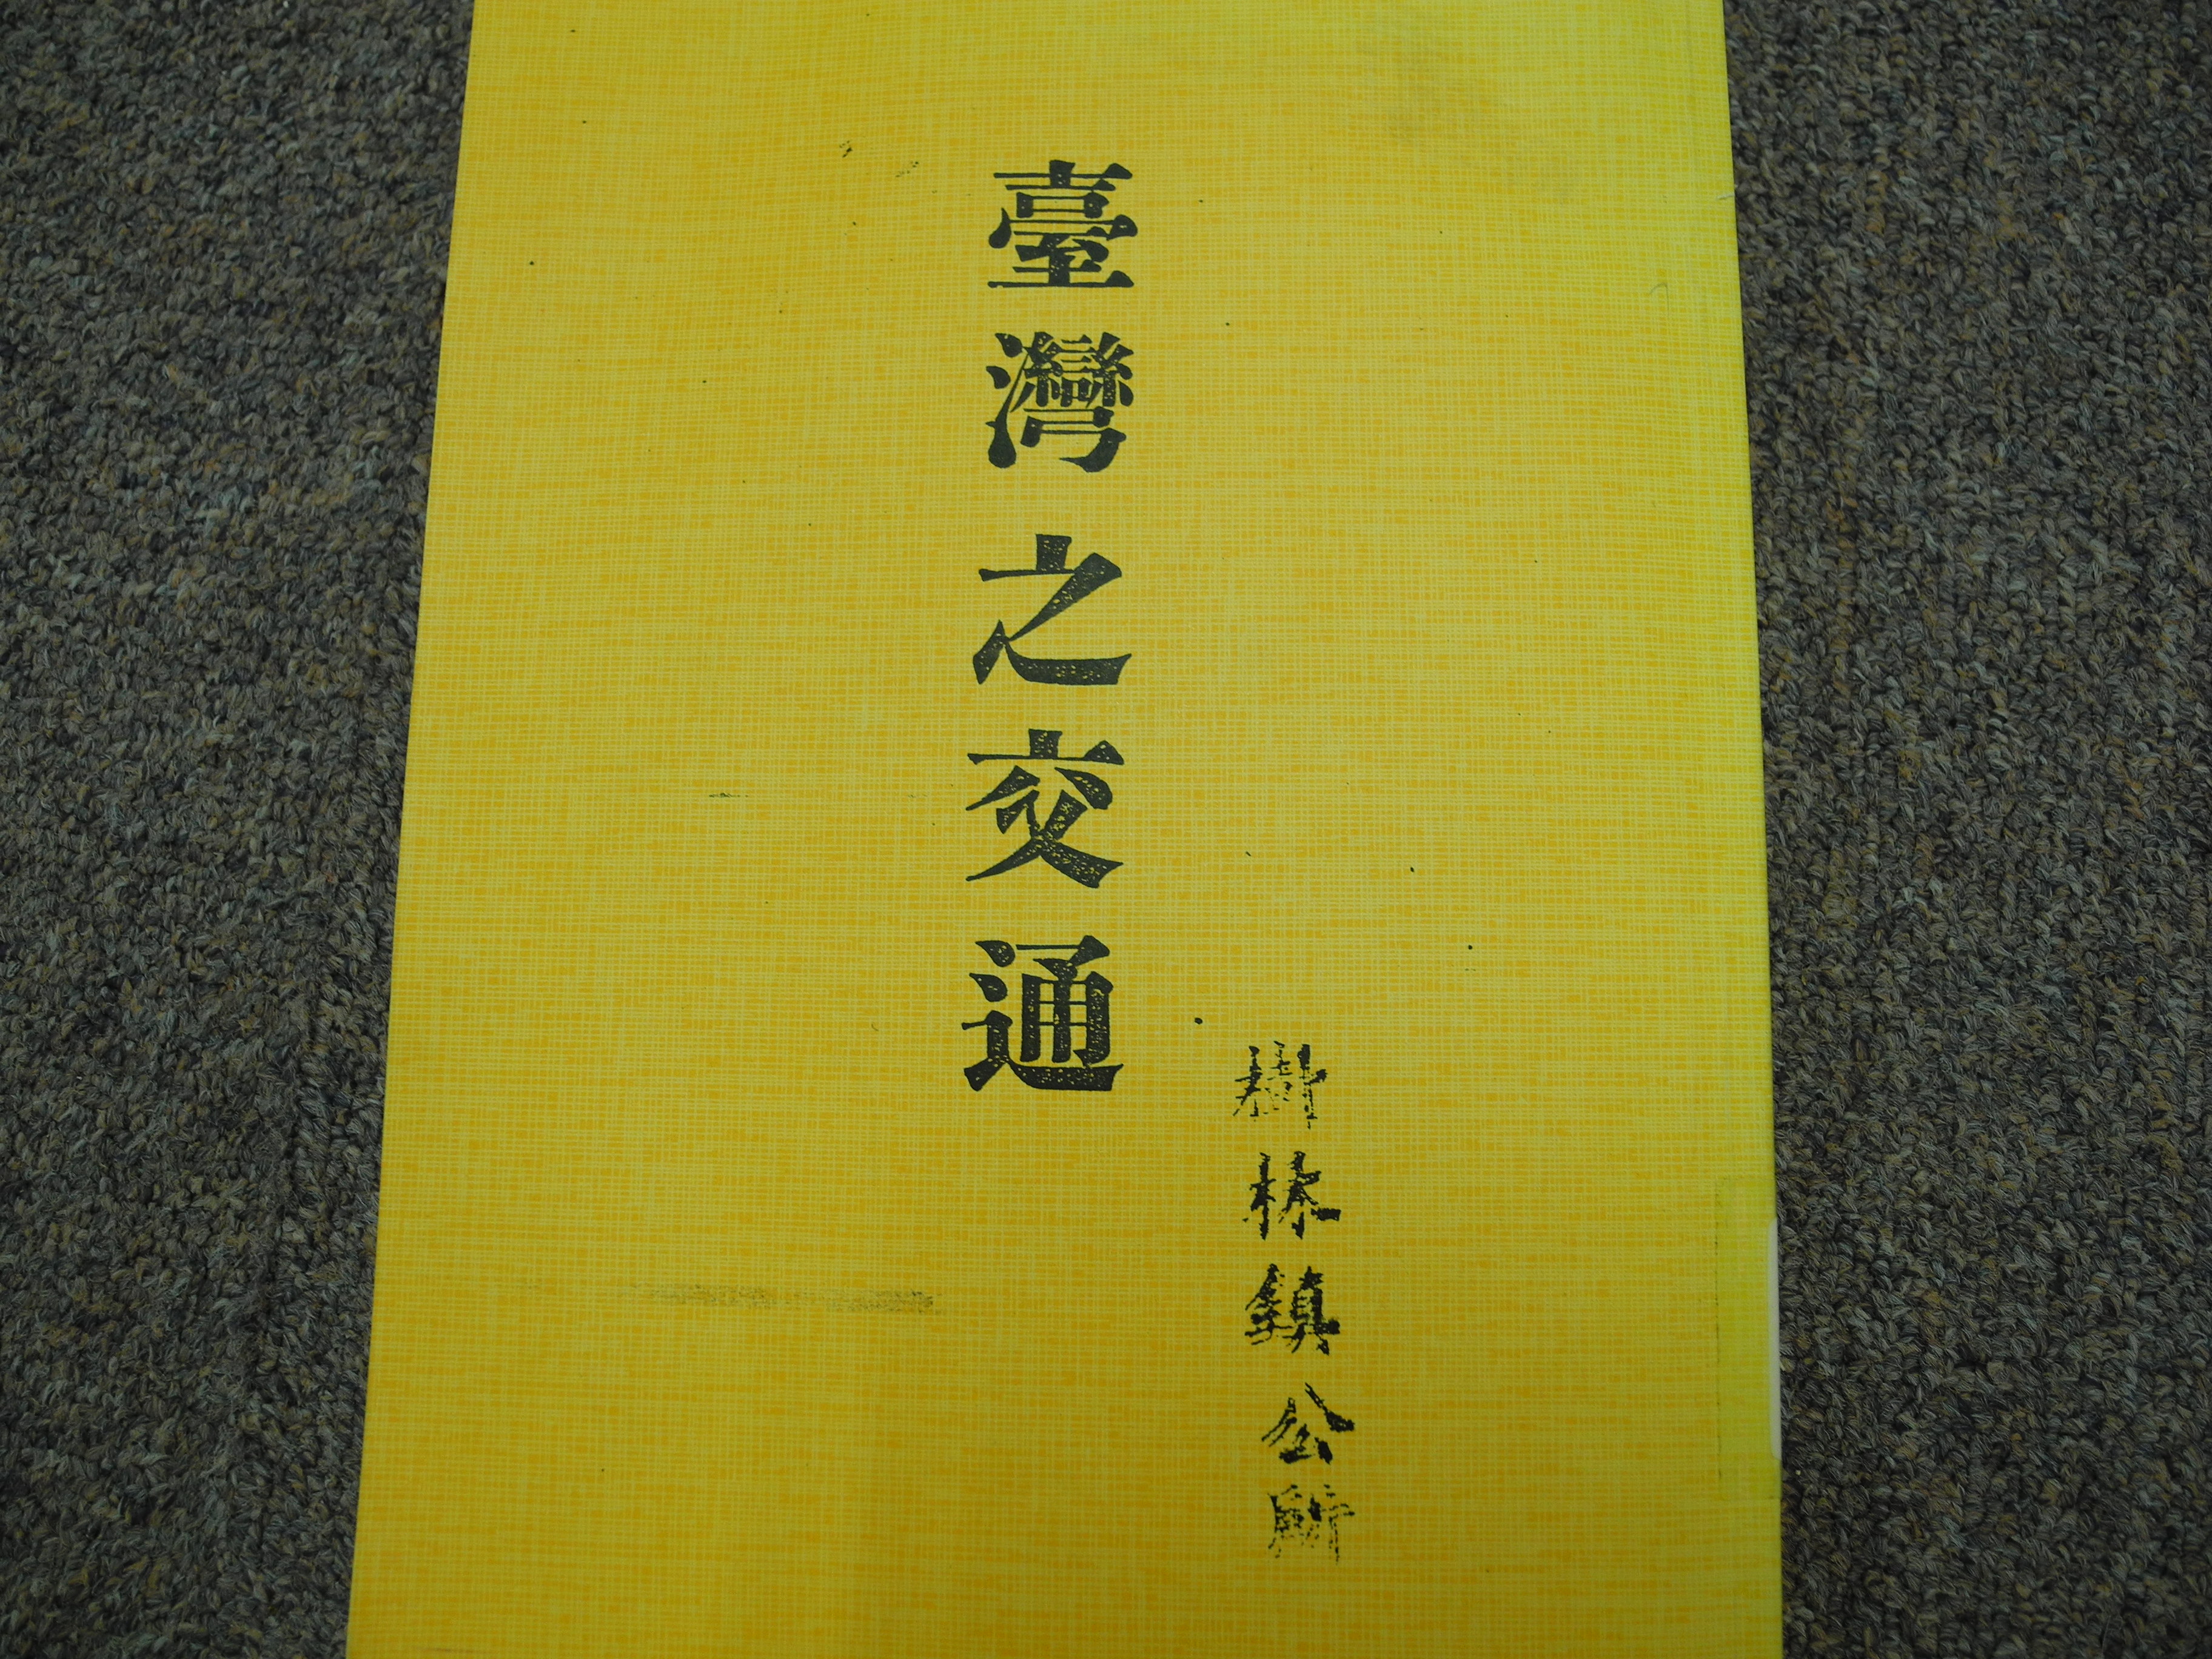 臺灣之交通
樹林鎮公所